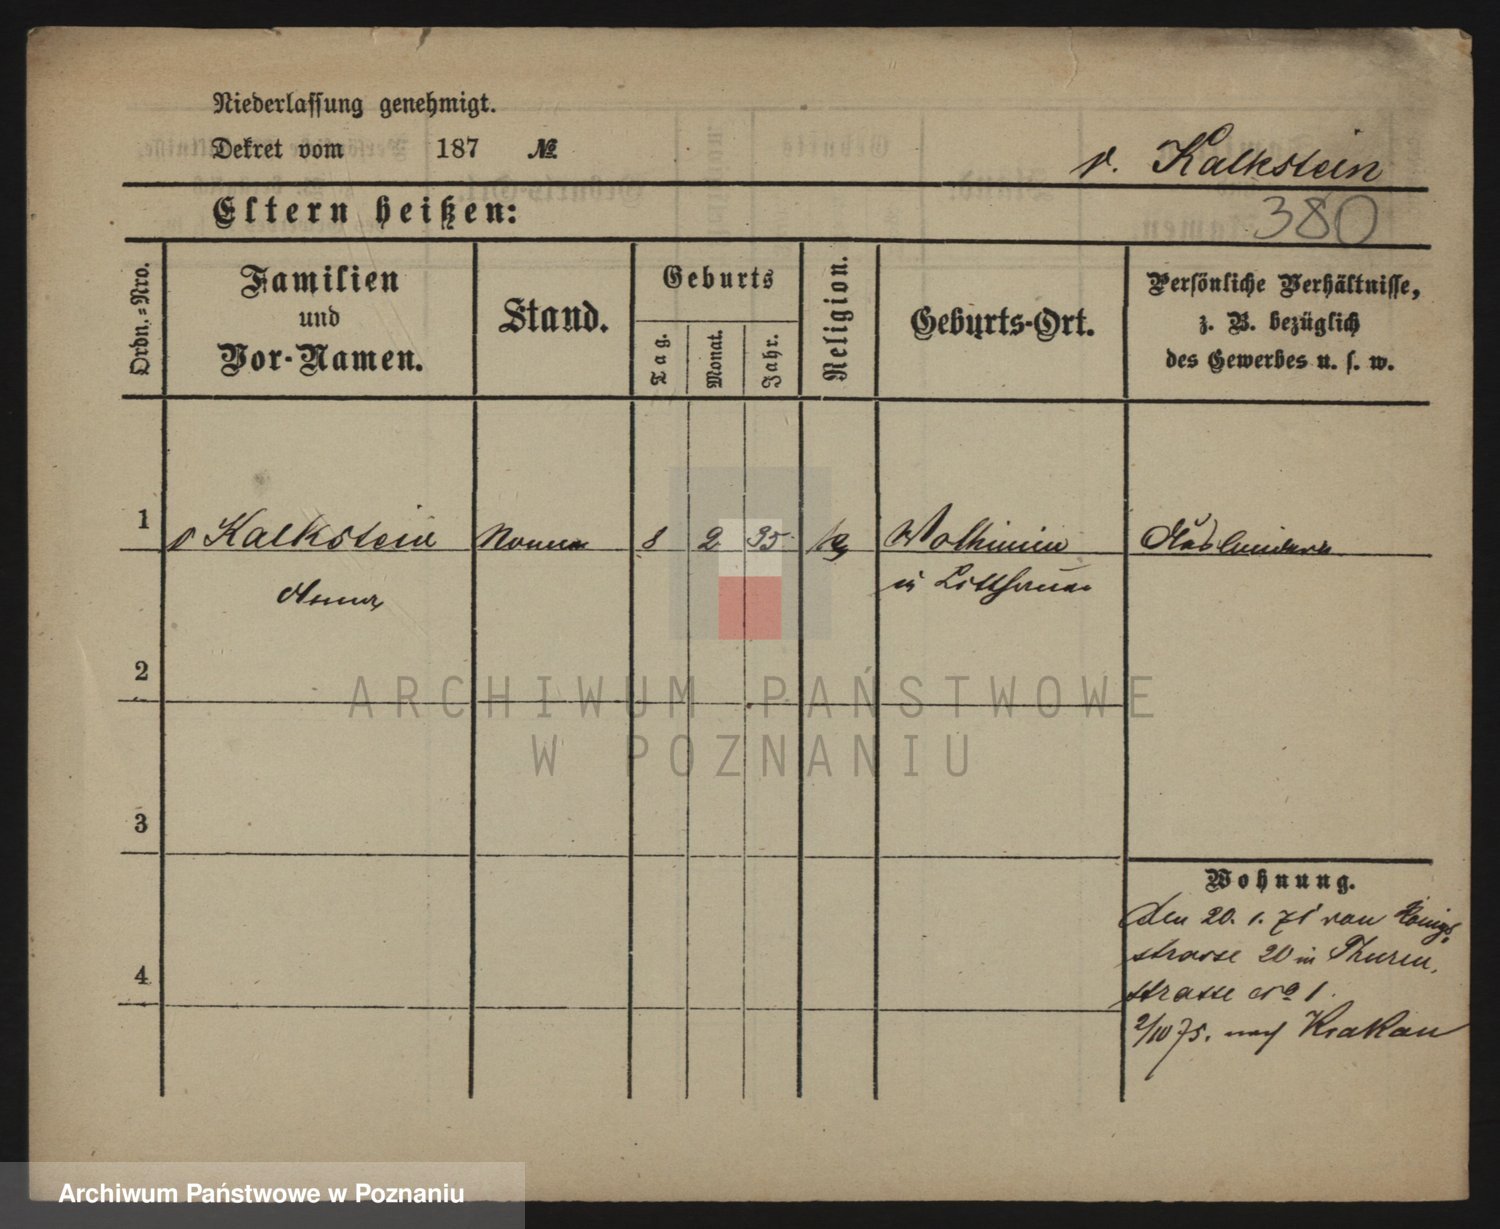 Niederlassung genehmigt.
Dekret vom 187 №
v. Kalkstein
Eltern heißen:
380
Ordn.-Nro.
Familien
und
Vor-Namen.
Stand.
Geburts
Tag.
Monat.
Jahr.
Religion.
Geburts-Ort.
Persönliche Verhältnisse,
z. B. bezüglich
des Gewerbes u. s. w.
1 v Kalkstein Nonne 8 2 35 Wolhinien
Anna in Litthauen
2
3
4
Wohnung.
Den 20. 1. 71 von Königs
strasse 20 in Thurm
strasse No 1.
2/10 75. nach Krakau
ARCHIWUM PAŃSTWOWE
W POZNANIU
Archiwum Państwowe w Poznaniu